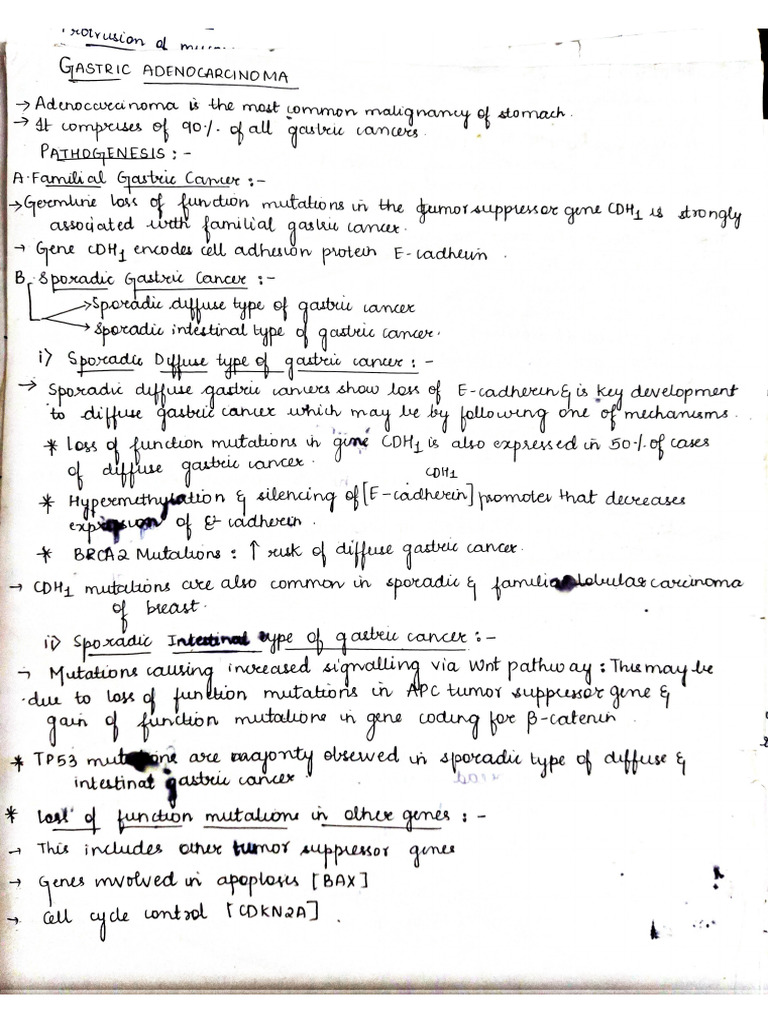 Protrusion of
GASTRIC ADENOCARCINOMA
→ Adenocarcinoma is the most common malignancy of stomach.
→ It comprises of 90% of all gastric cancers.
PATHOGENESIS :-
A. Familial Gastric Cancer :-
→ Germline loss of function mutations in the tumor suppressor gene CDH1 is strongly
associated with familial gastric cancer.
→ Gene CDH1 encodes cell adhesion protein E-cadherin.
B. Sporadic Gastric Cancer :-
→ Sporadic diffuse type of gastric cancer
→ Sporadic intestinal type of gastric cancer.
i) Sporadic Diffuse type of gastric cancer :-
→ Sporadic diffuse gastric cancers show loss of E-cadherin & is key development
to diffuse gastric cancer which may be by following one of mechanisms.
* Loss of function mutations in gene CDH1 is also expressed in 50% of cases
of diffuse gastric cancer.
CDH1
* Hypermethylation & silencing of [E-cadherin] promoter that decreases
expression of E-cadherin.
* BRCA2 Mutations : ↑ risk of diffuse gastric cancer.
→ CDH1 mutations are also common in sporadic & familial lobular carcinoma
of breast.
ii) Sporadic Intestinal type of gastric cancer :-
→ Mutations causing increased signalling via Wnt pathway : This may be
due to loss of function mutations in APC tumor suppressor gene &
gain of function mutations in gene coding for β-catenin.
* TP53 mutations are majority observed in sporadic type of diffuse &
intestinal gastric cancer.
* Lost of function mutations in other genes :-
→ This includes other tumor suppressor genes
→ Genes involved in apoptosis [BAX]
→ Cell cycle control [CDKN2A].